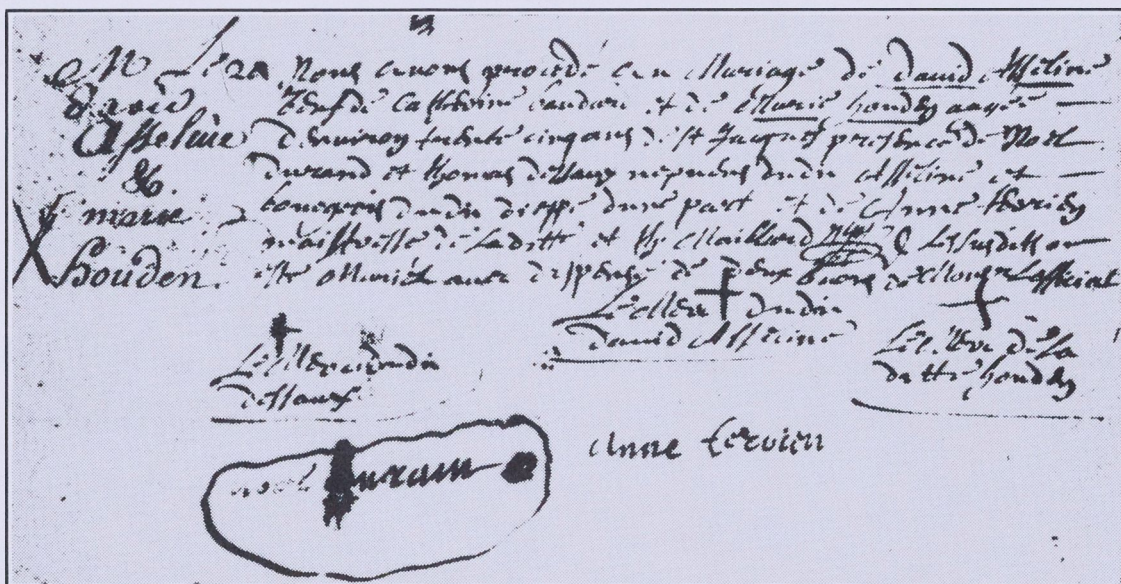 M
david
Asseline
&
marie
houden.
Le 20 Nous avons procédé au Mariage de david Asseline
Veuf de Catherine baudart et de Marie houden aagée
denviron trente cinq ans de st Jacques presence de Noel
durand et thomas dessaux nepveus dudit Asseline et
bourgeois dudit dieppe dune part et de Anne
maistresse de laditte et Maillard & les susdits
este Mariéz avec dispense de deux bans de
Le Merc dudit
dessaux
Le Merc dudit
david Asseline
Le Merc de la
ditte houden
noel duram
anne tervien